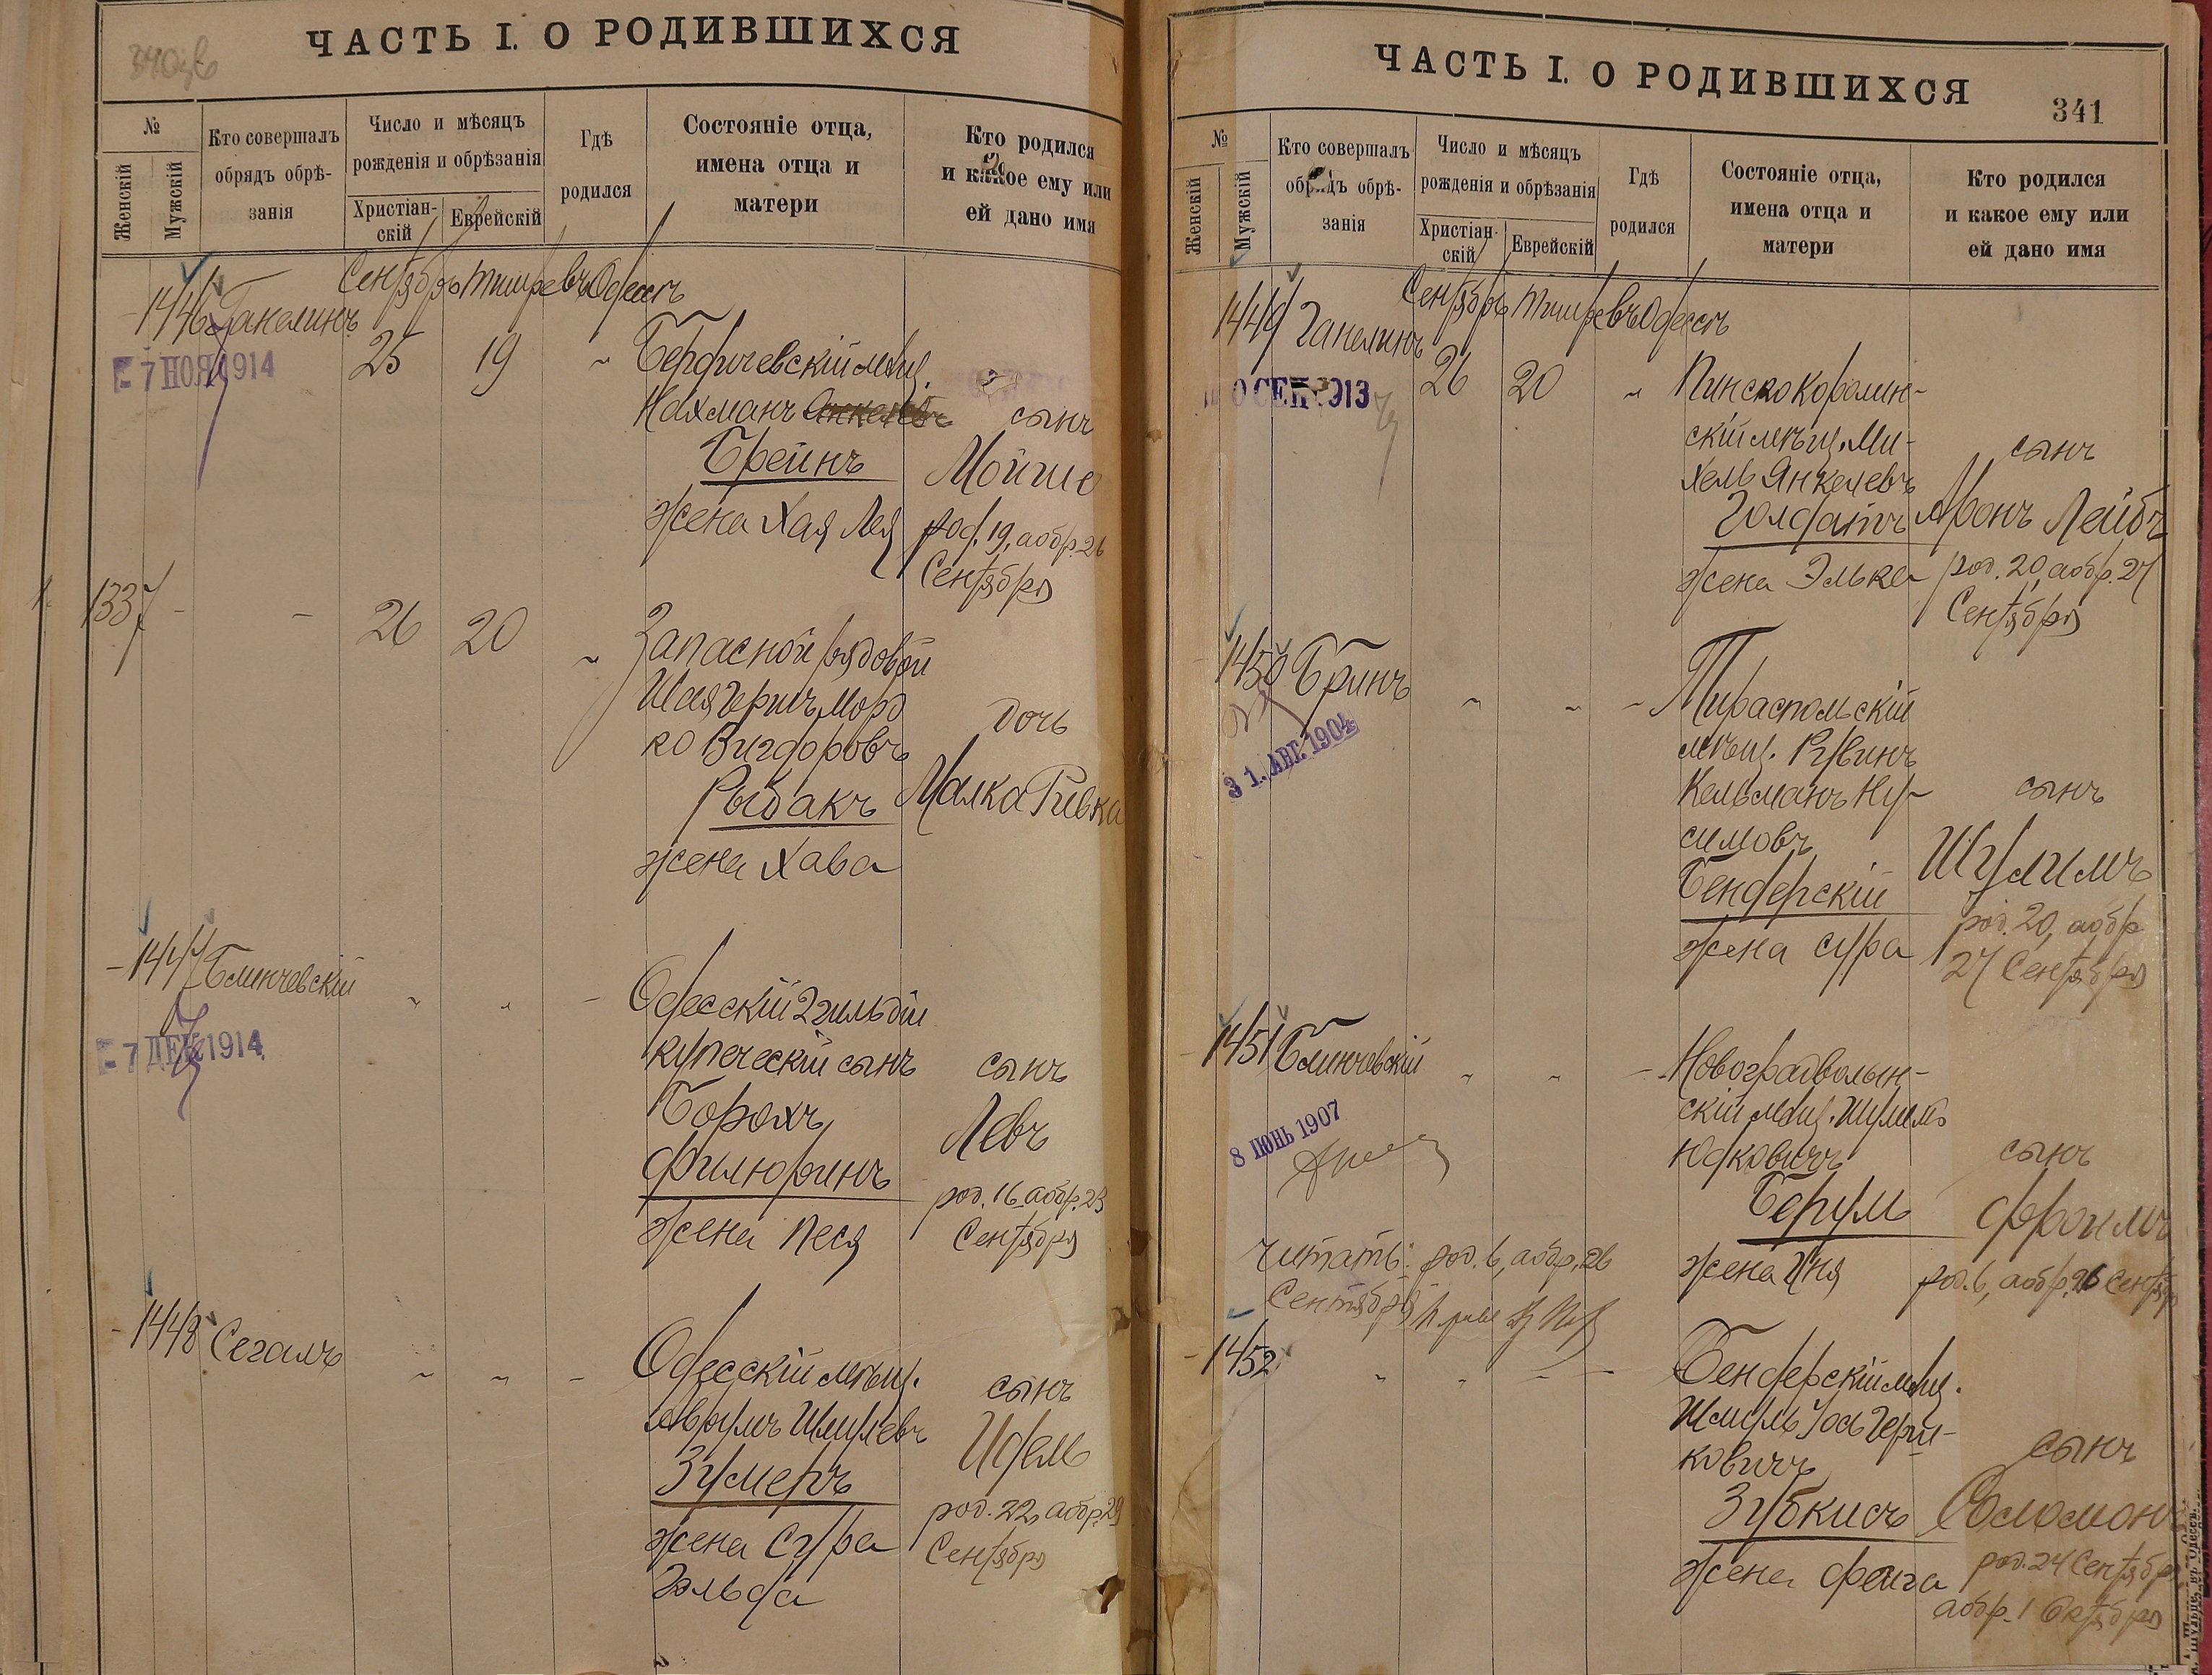 340 об
ЧАСТЬ I. О РОДИВШИХСЯ
№
Женскій
Мужской
Кто совершалъ
обрядъ обрѣ-
занія
Число и мѣсяцъ
рожденія и обрѣзанія
Христіан-
скій
Еврейскій
Гдѣ
родился
Состояніе отца,
имена отца и
матери
Кто родился
и какое ему или
ей дано имя
1446 Ганелинъ Сентябрь Тишре въ Одессѣ
7 НОЯ 1914
25 19 "
Бердичевскій мѣщ.
Нахманъ
Брейнъ
жена Хая Лея
сынъ
Мойше
род. 19, а обр. 26
Сентября
1337 - - 26 20 "
Запасной рядовой
Шая Герш, Морд
ко Вигдоровъ
Рыбакъ
жена Хава
дочь
Малка Ривка
1447 Блинчевскій " " -
7 ДЕК 1914
Одесскій 2 гильдіи
купеческій сынъ
Борохъ
Филюринъ
жена Песя
сынъ
Левъ
род. 16 а обр. 23
Сентября
1448 Сегалъ " " -
Одесскій мѣщ.
Аврумъ Шмулевъ
Зумеръ
жена Сура
Гольда
сынъ
Идель
род. 22, а обр. 29
Сентября
ЧАСТЬ I. О РОДИВШИХСЯ
341
№
Женскій
Мужскій
Кто совершалъ
обрядъ обрѣ-
занія
Число и мѣсяцъ
рожденія и обрѣзанія
Христіан-
скій
Еврейскій
Гдѣ
родился
Состояніе отца,
имена отца и
матери
Кто родился
и какое ему или
ей дано имя
1449 Ганелинъ Сентябрь Тишре въ Одессѣ
СЕН 1913
26 20 "
Пинско Королин-
скій мѣщ. Ми-
хель Янкелевъ
Голдатъ
жена Элька
сынъ
Аронъ Лейбъ
род. 20, а обр. 27
Сентября
1450 Бринъ " " -
31. АВГ. 1904
Тираспольскій
мѣщ. Рувинъ
Кельманъ Ну-
симовъ
Бендерскій
жена Сура
сынъ
Шулимъ
род. 20, а обр
27 Сентября
1451 Блинчевскій " " -
8 ІЮНЬ 1907
Новоградволын-
скій мѣщ. Шулимъ
Юдковичъ
Берулъ
жена Хня
сынъ
Фроимъ
род. 6, а обр. 26 Сентяб
Читать: род. 6, а обр. 26
Сентября
1452 " " - -
Бендерскій мѣщ.
Шмуль Іось Герш-
ковичъ
Зубкисъ
жена Фейга
сынъ
Соломонъ
род. 24 Сентября
а обр. 1 Октября